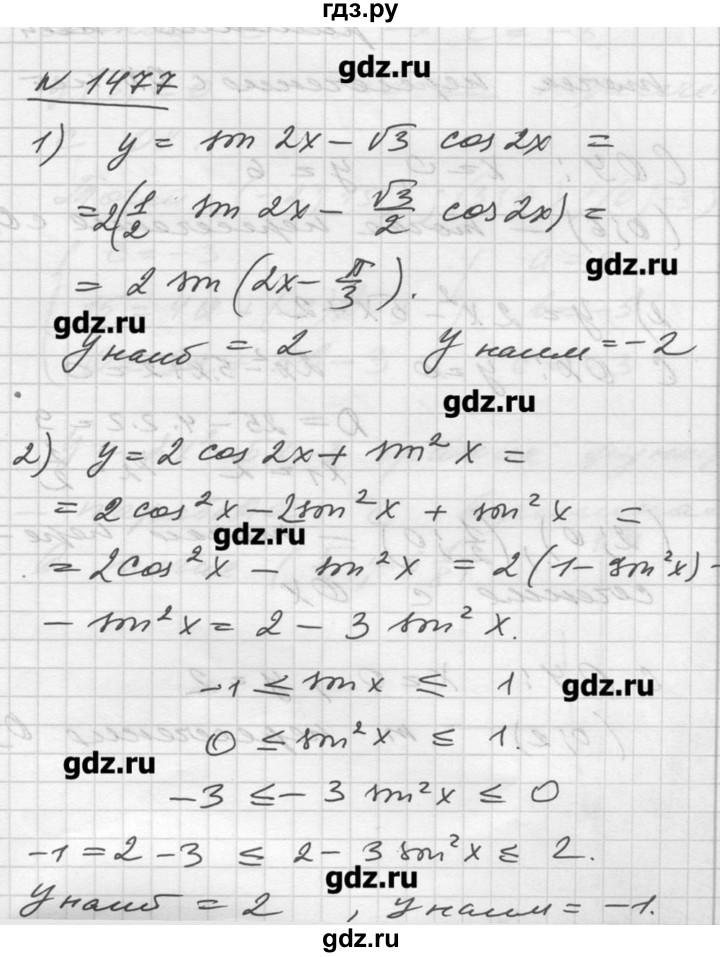 гдз.ру
gdz.ru
N 1477
1) y = sin 2x − √3 cos 2x =
= 2(1/2 sin 2x − √3/2 cos 2x) =
gdz.ru
= 2 sin (2x − π/3).
gdz.ru
y наиб = 2 y наим = −2
gdz.ru
2) y = 2 cos 2x + sin² x =
= 2 cos² x − 2 sin² x + sin² x =
gdz.ru
= 2 cos² x − sin² x = 2(1 − sin² x) −
− sin² x = 2 − 3 sin² x.
−1 ≤ sin x ≤ 1
gdz.ru
0 ≤ sin² x ≤ 1.
gdz.ru
−3 ≤ −3 sin² x ≤ 0
−1 = 2 − 3 ≤ 2 − 3 sin² x ≤ 2.
gdz.ru
y наиб = 2 , y наим = −1.
gdz.ru